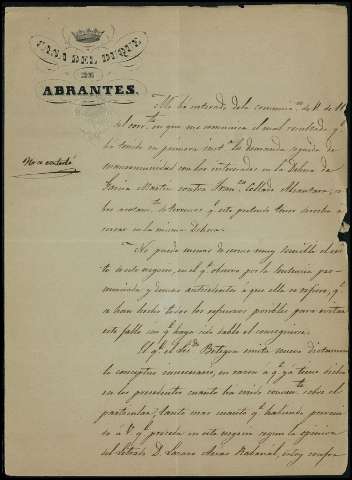 CASA DEL DUQUE
DE
ABRANTES.
Me he enterado de la comunic.on de V. de 11
del corr.te en que me comunica el mal resultado q.e
ha tenido en primera inst.a la demanda seguida de
mancomunidad con los interesados en la Dehesa de
Martin contra Fran.co Collado Alcantara; 
de terrenos q.e este pretende tener derecho a
en la misma dehesa.
No puedo menos de serme muy sensible el
to de este negocio, en el q.e observo por la sentencia pro-
nunciada y demas antecedentes a que ella se refiere, q.e
se han hecho todos los esfuerzos posibles para evitar
este fallo sin q.e haya sido dable el conseguirse.
El q.e el Lic.do Botegon emita nuevo dictamen
lo conceptuo innecesario, en razon a q.e ya tiene dicho
en los precedentes cuanto ha creido conven.te sobre el
particular; tanto mas cuanto q.e habiendo
a V. q.e proceda en este negocio segun la opinion
del Letrado D. Lazaro Rabanal, estoy confor-